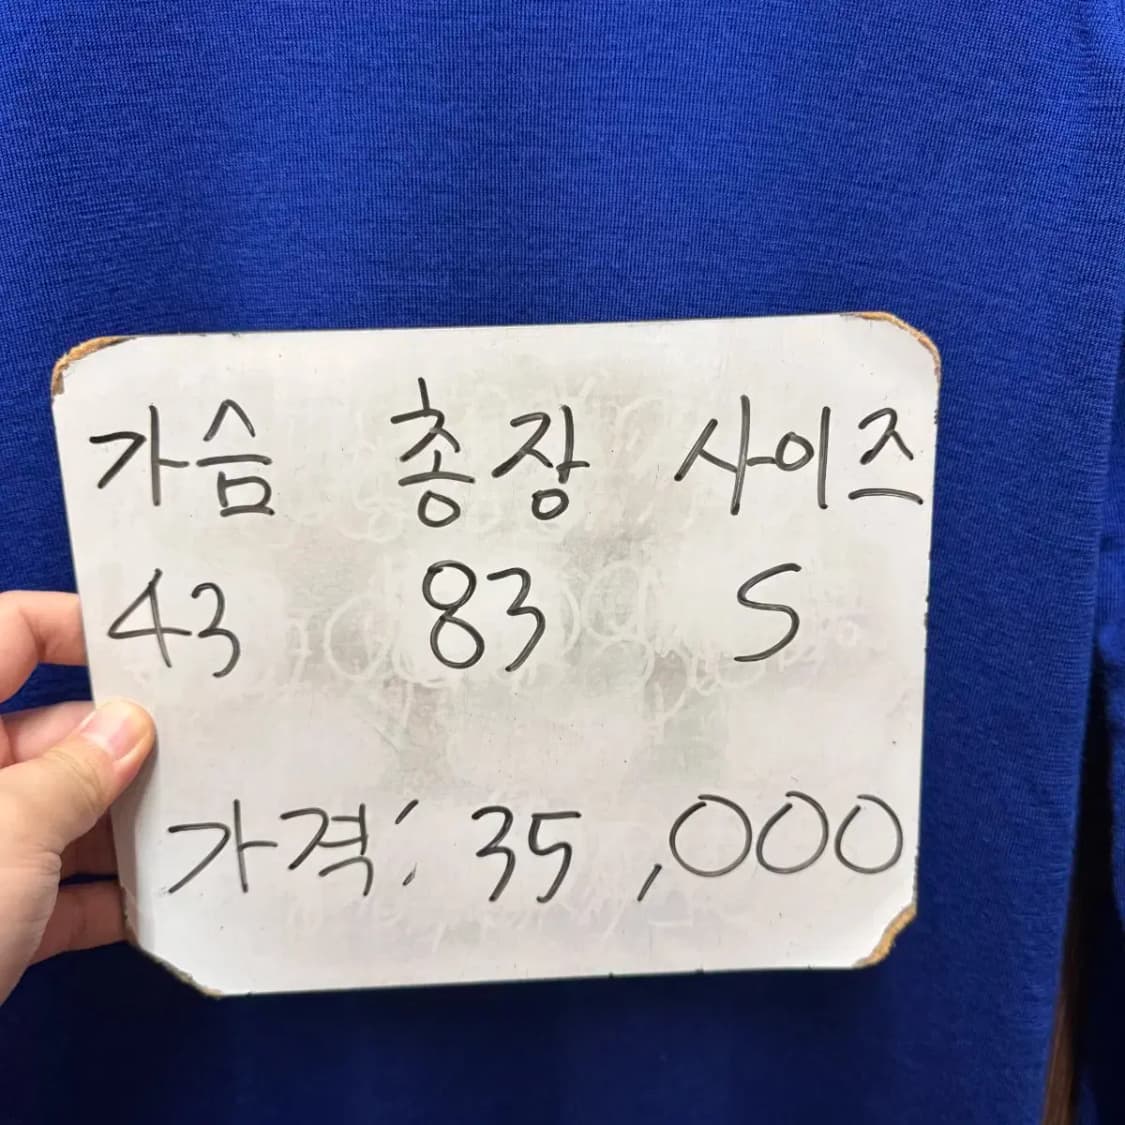 가슴 총장 사이즈
43 83 S
가격: 35,000